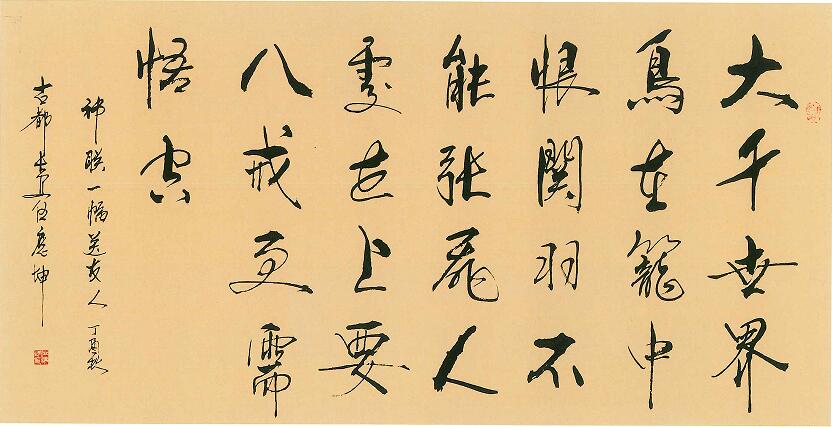 大千世界
鳥在籠中
恨關羽不
能張飛人
處世上要
八戒更需
悟空
神联一幅送友人 丁酉秋
古都 任應坤